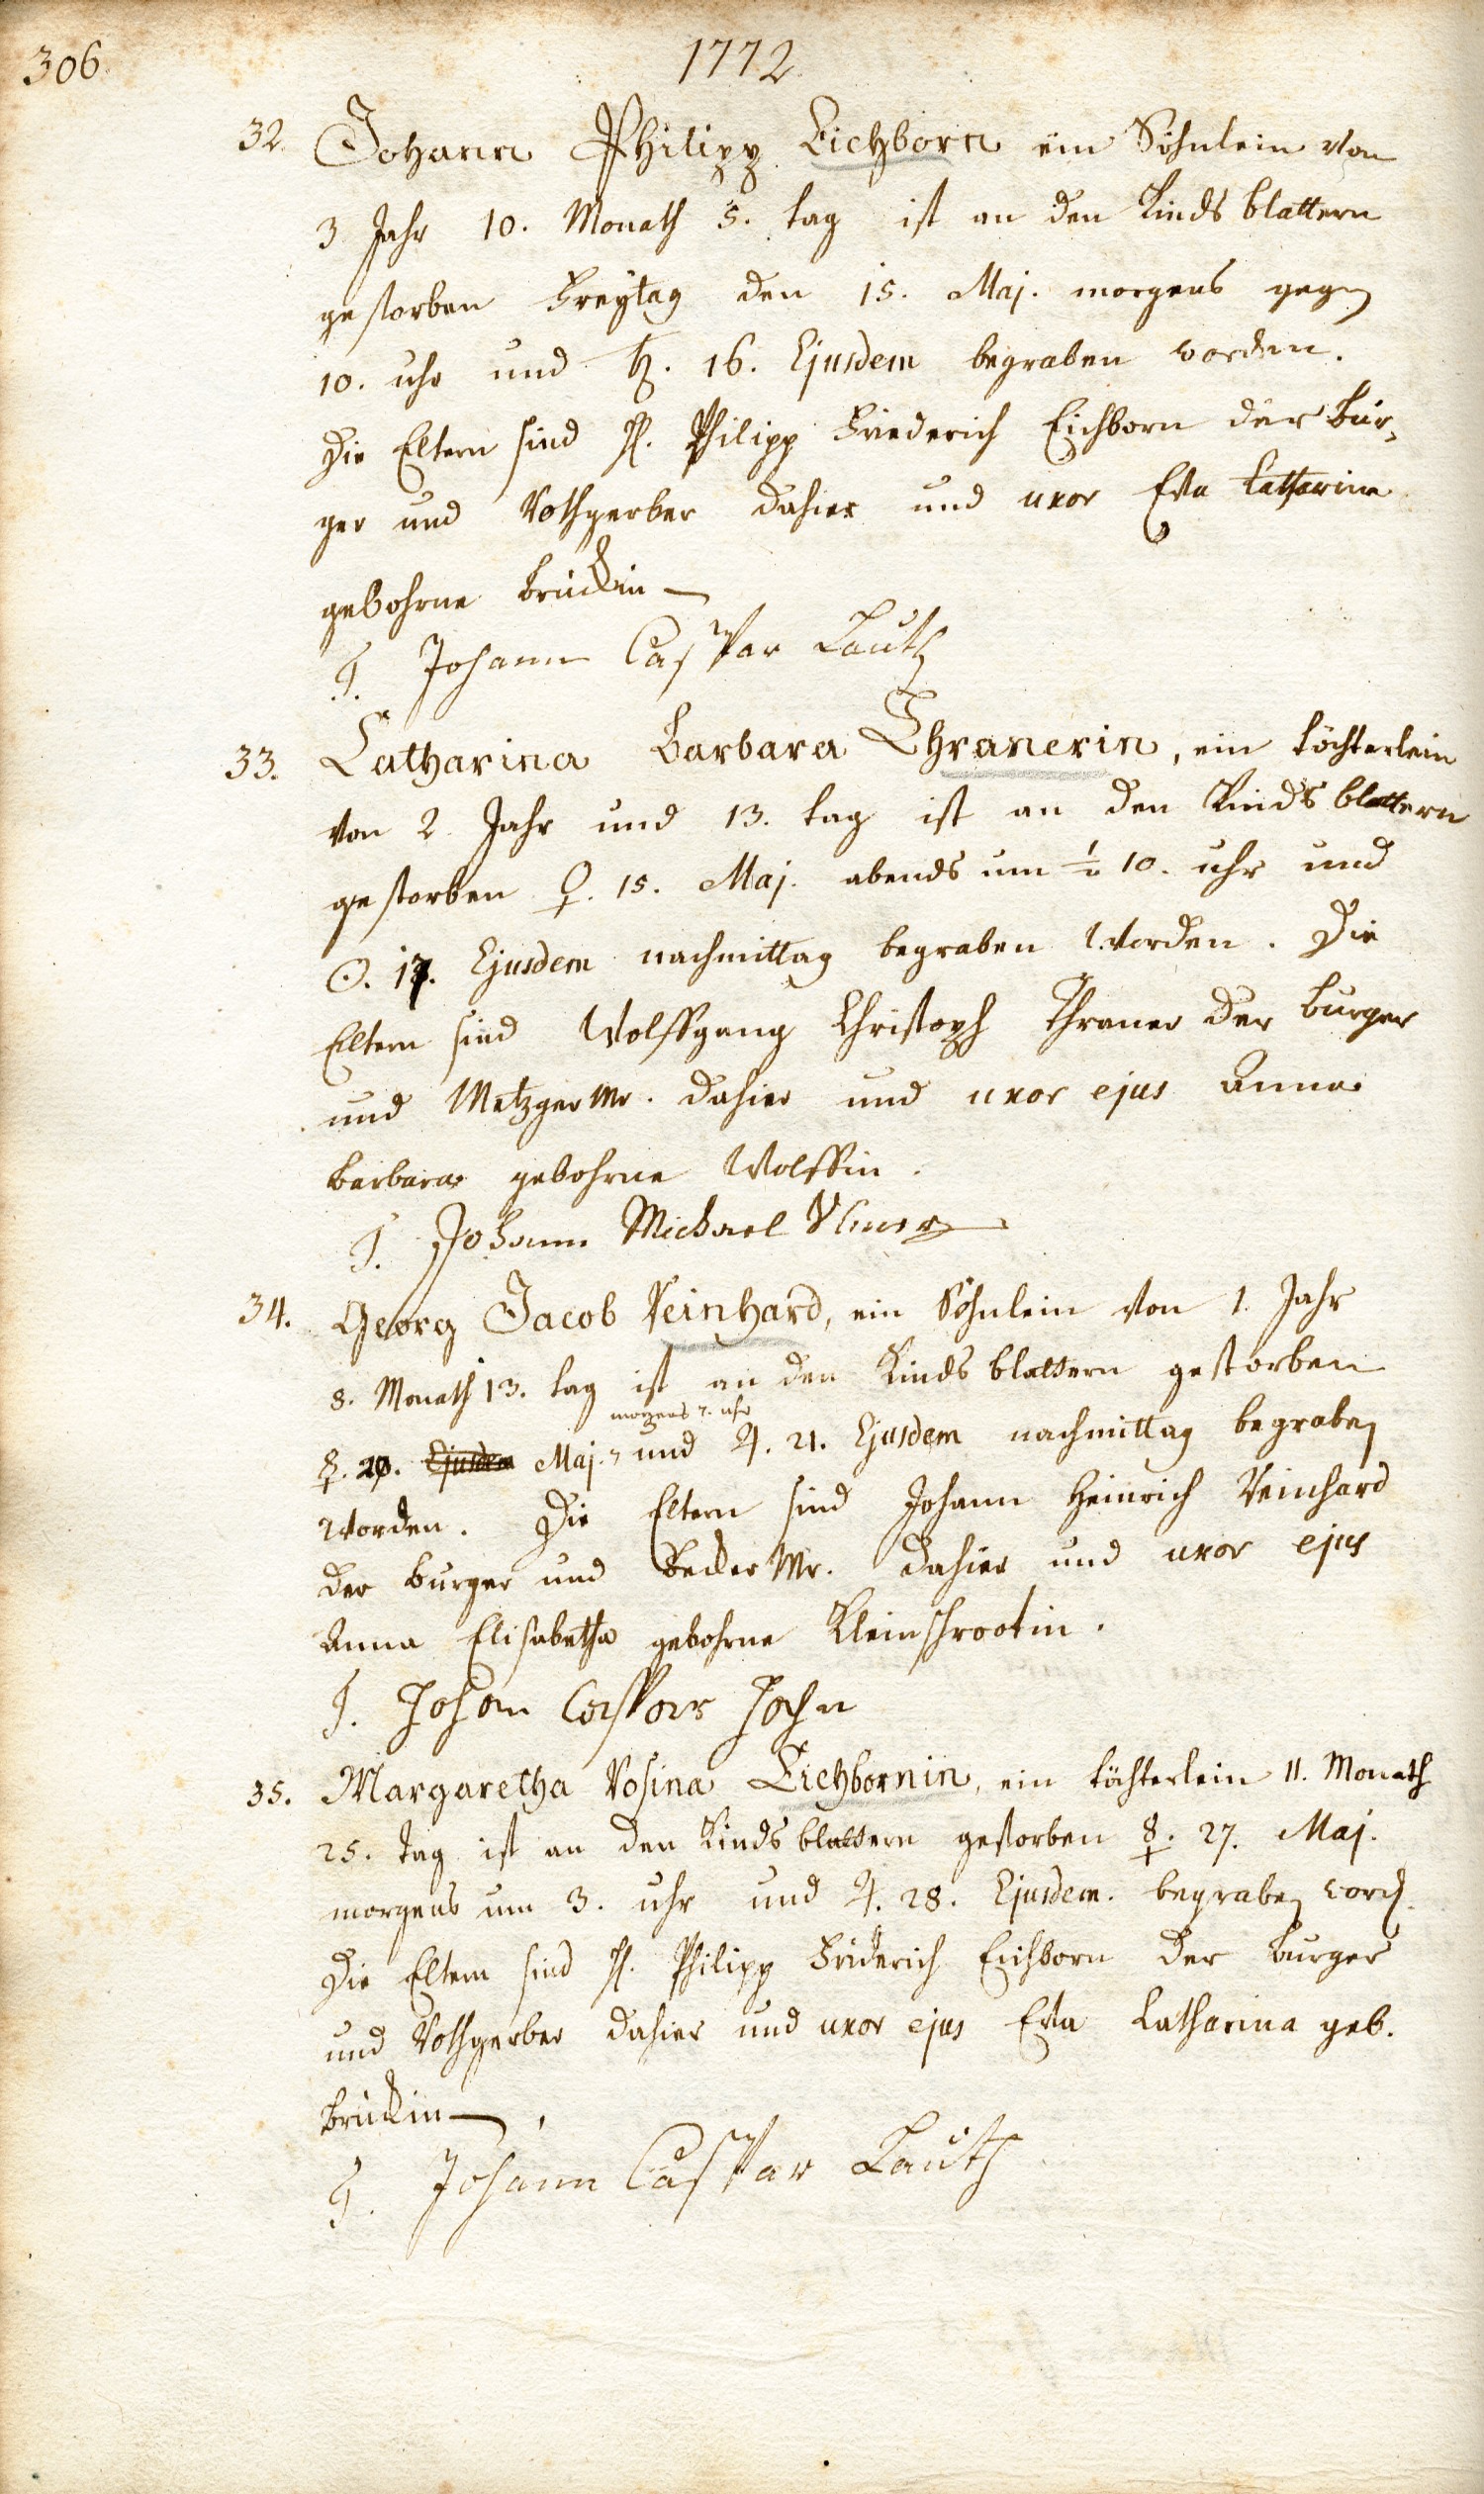 306.
1772
32. Johann Philipp Eichborn ein Söhnlein von
3 Jahr 10. Monath 5. tag ist an den Kinds blattern
gestorben Freytag den 15. Maj. morgens gegen
10. uhr und ♄. 16. Ejusdem begraben worden.
Die Eltern sind H. Philipp Friederich Eichborn der bur-
ger und Rothgerber dahier und uxor Eva Catharina
gebohrne brückin
T. Johann Casppar Lautz
33. Catharina Barbara Thranerin, ein töchterlein
von 2 Jahr und 13. tag ist an den Kinds blattern
gestorben ♀. 15. Maj. abends um ½ 10. uhr und
☉. 17. Ejusdem nachmittag begraben worden. Die
Eltern sind Wolffgang Christoph Thraner der burger
und Metzger Mr. dahier und uxor ejus Anna
barbara gebohrne Wolffin.
T. Johann Michael
34. Georg Jacob Reinhard, ein Söhnlein von 1. Jahr
8. Monath 13. tag ist an den Kinds blattern gestorben
morgens 7. uhr
☿. 20. Maj. und ♃. 21. Ejusdem nachmittag begraben
worden. Die Eltern sind Johann Heinrich Reinhard
der burger und Becker Mr. dahier und uxor ejus
Anna Elisabetha gebohrne Kleinschrootin.
T. Johan Casppar John
35. Margaretha Rosina Eichbornin, ein töchterlein 11. Monath
25. tag ist an den Kinds blattern gestorben ☿. 27. Maj.
morgens um 3. uhr und ♃. 28. Ejusdem. begraben word.
Die Eltern sind H. Philipp Friderich Eichborn der burger
und Rothgerber dahier und uxor ejus Eva Catharina geb.
brückin
T. Johann Casppar Lautz